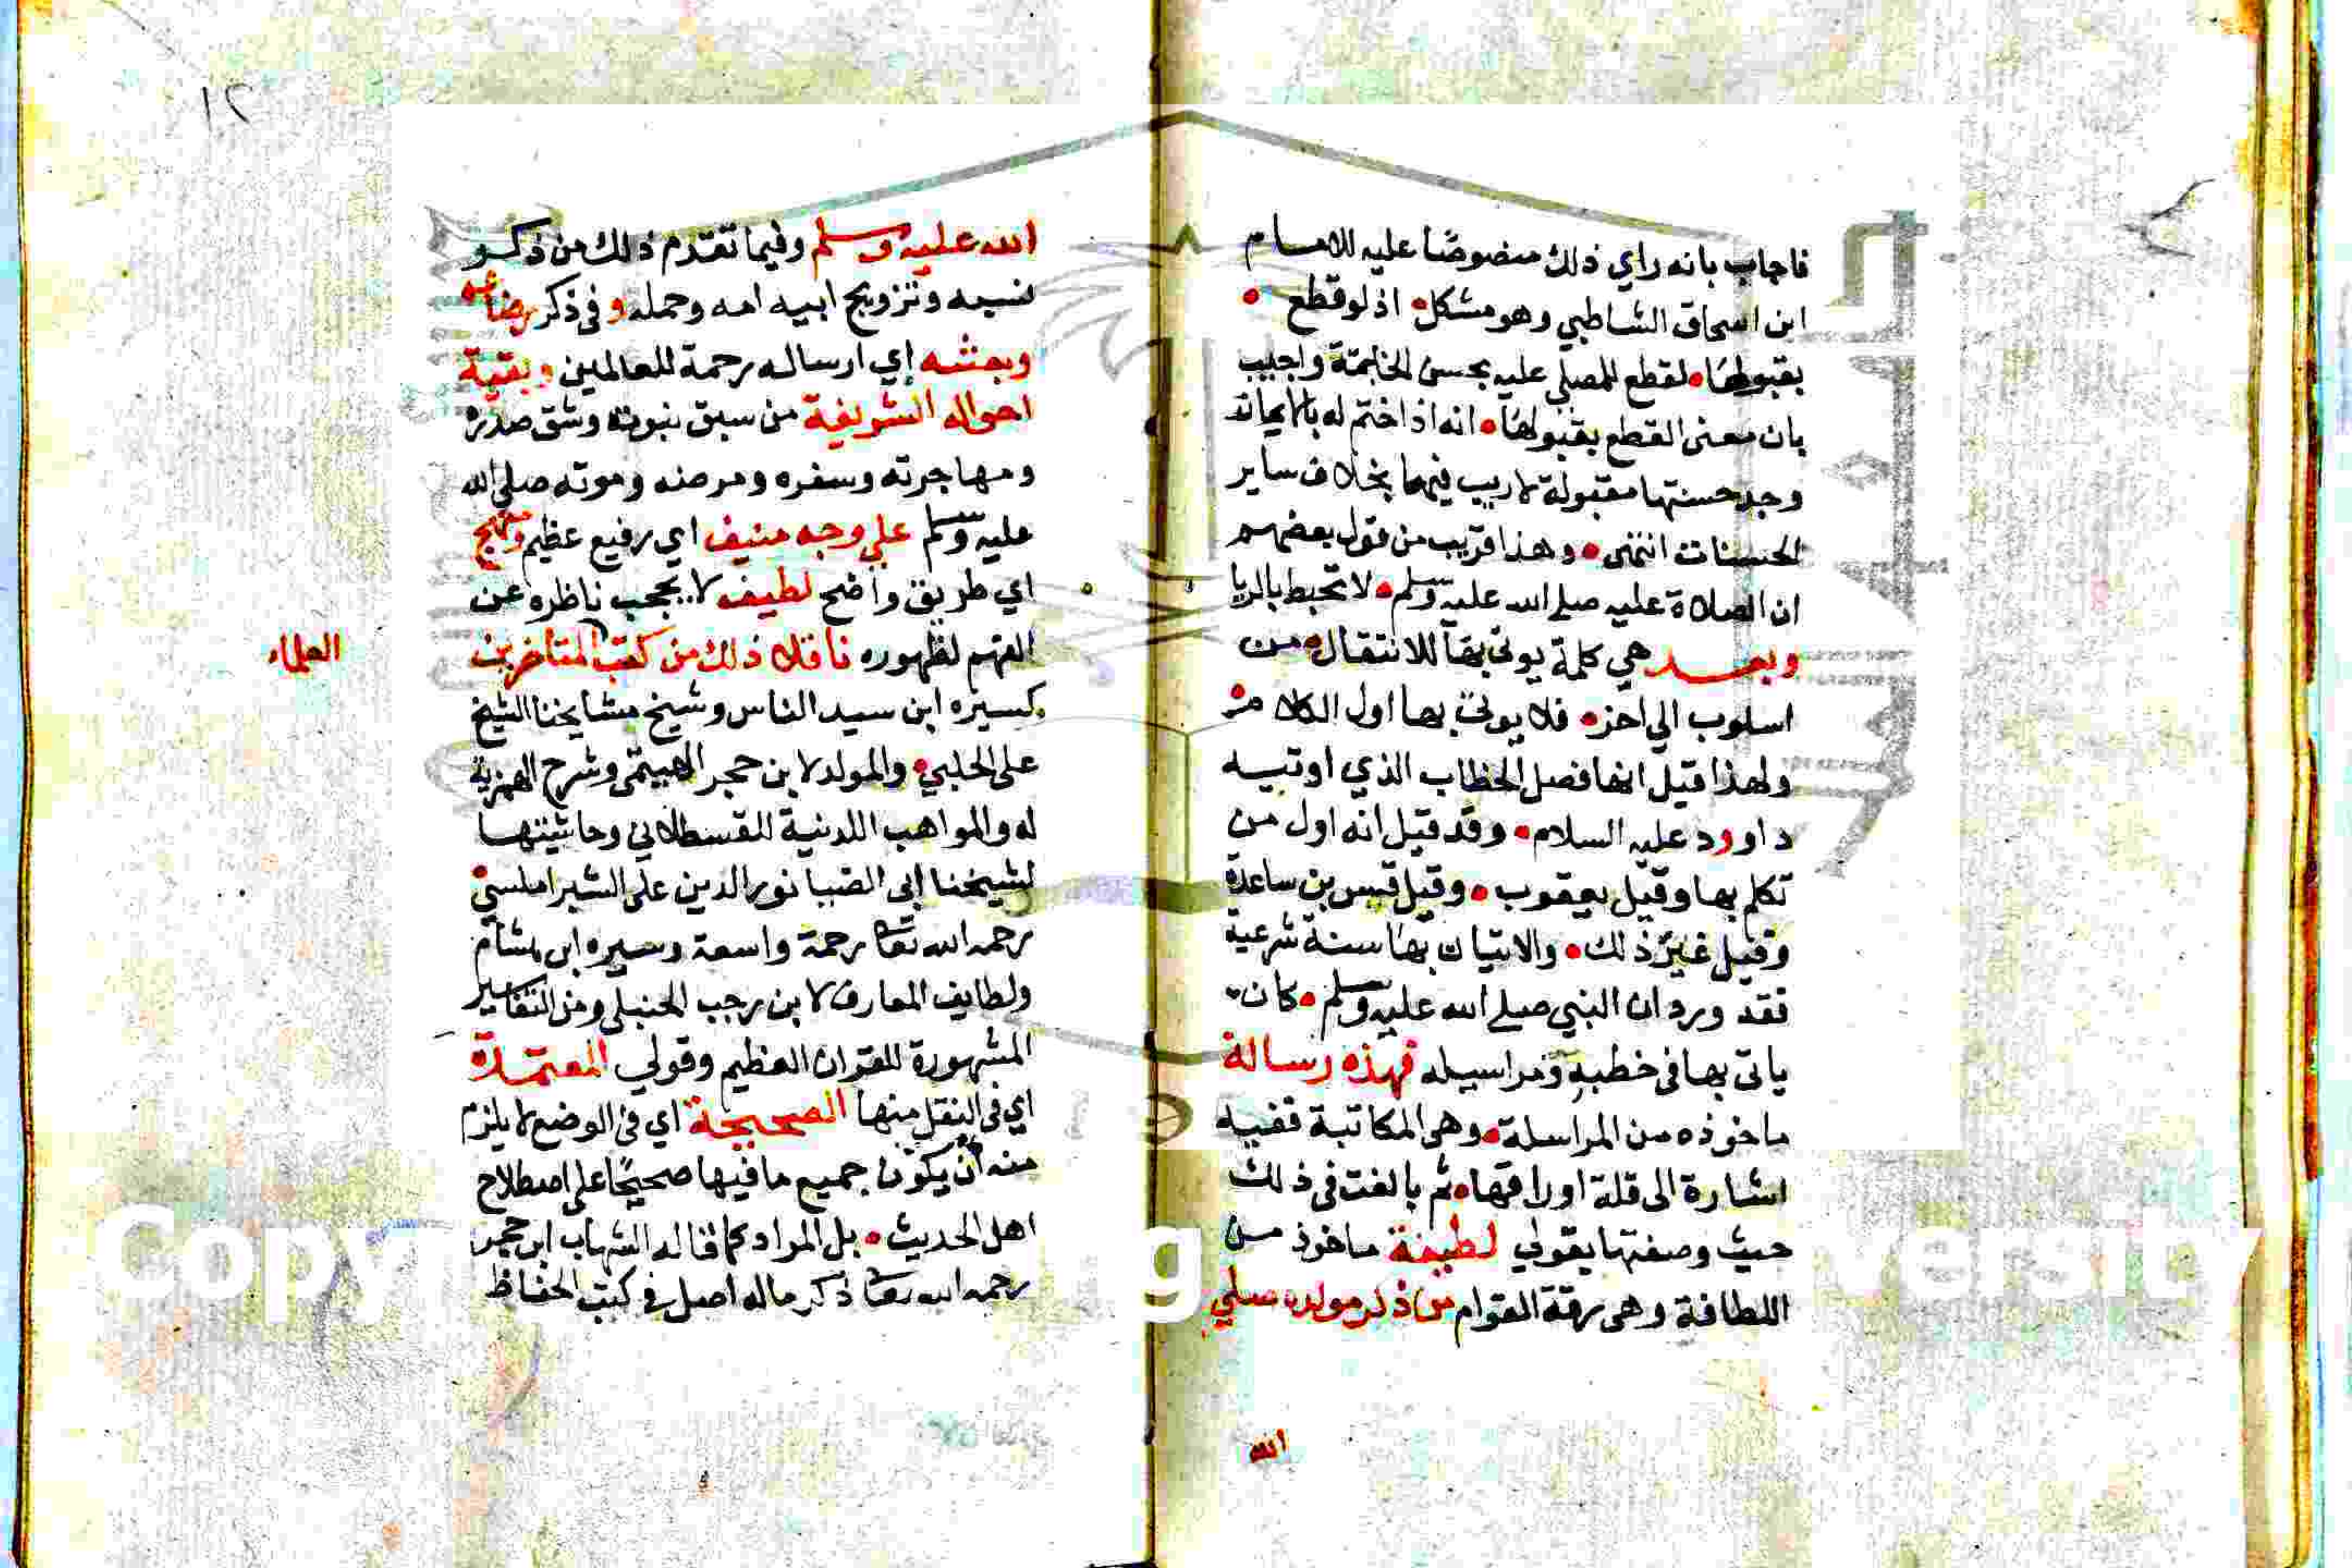 فاجاب بانه راي ذلك منصوصًا عليه للامام
ابن اسحاق الشاطبي وهو مشكل اذ لو قطع
بقبولها لقطع للمصلي عليه بحسن الخاتمة واجيب
بان معنى القطع بقبولها انه اذا ختم له بالايمان
وجد حسنتها مقبولة لا ريب فيها بخلاف ساير
الحسنات انتهى وهذا قريب من قول بعضهم
ان الصلاة عليه صلى الله عليه وسلم لا تحبط بالريا
وبعد هي كلمة يوتى بها للانتقال من
اسلوب الي اخر فلا يوتى بها اول الكلام
ولهذا قيل انها فصل الخطاب الذي اوتيه
داوود عليه السلام وقد قيل انه اول من
تكلم بها وقيل يعقوب وقيل قيس بن ساعدة
وقيل غير ذلك والاتيان بها سنة شرعية
فقد ورد ان النبي صلى الله عليه وسلم كان
ياتى بها في خطبه ومراسيله فهذه رسالة
ماخوذه من المراسلة وهي المكاتبة ففيه
اشارة الى قلة اوراقها ثم بالغت فى ذلك
حيث وصفتها بقولي لطيفة ماخوذ من
اللطافة وهى رقة القوام من ذكر مولده صلي
الله
١٢
الله عليه وسلم وفيما تقدم ذلك من ذكر
نسبه وتزويج ابيه امه وحمله وفى ذكر رضاعه
وبعثته إي ارساله رحمة للعالمين وبقية
احواله الشريفة من سبق نبوته وشق صدره
ومهاجرته وسفره ومرضه وموته صلى الله
عليه وسلم على وجه منيف اي رفيع عظيم ومنهج
اي طريق واضح لطيف لا يحجب ناظره عن
الفهم لظهوره ناقلا ذلك من كتب المتاخرين
العلماء
كسيره ابن سيد الناس وشيخ مشايخنا الشيخ
على الحلبي والمولد لابن حجر الهيتمى وشرح الهمزية
له والمواهب اللدنية للقسطلاني وحاشيتها
لشيخنا ابى الضيا نور الدين على الشبراملسي
رحمه الله تعا رحمة واسعة وسيره ابن هشام
ولطايف المعارف لابن رجب الحنبلي ومن التفاسير
المشهورة للقران العظيم وقولي المعتمدة
اي فى النقل منها الصحيحة اي فى الوضع لا يلزم
منه أن يكون جميع ما فيها صحيحًا على اصطلاح
اهل الحديث بل المراد كما قاله الشهاب ابن حجر
رحمه الله تعا ذكر ماله اصل في كتب الحفاظ